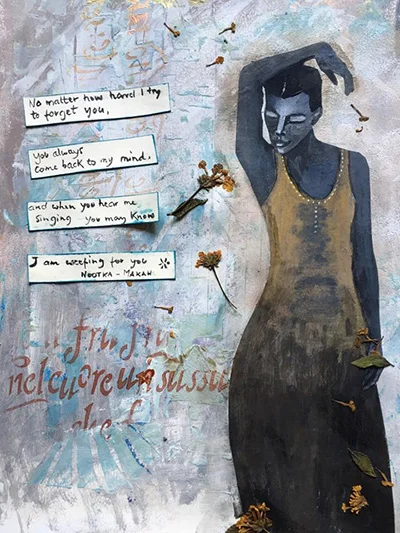 No matter how hard I try
to forget you,
you always
come back to my mind,
and when you hear me
singing you may know
I am weeping for you
NOOTKA - MAKAH
nel cuore un sussu